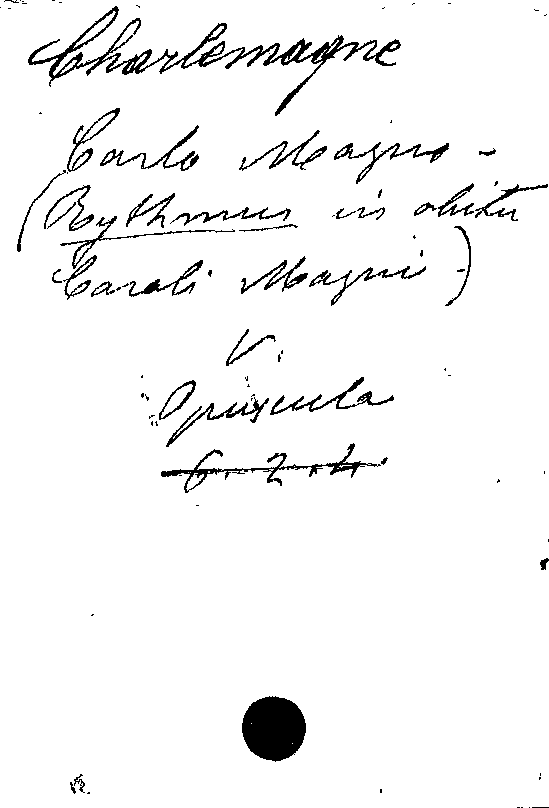 Charlemagne
Carlo Magno -
(Rythmus in obitu
Caroli Magni)
V.
Opuscula
6. 2. 4.